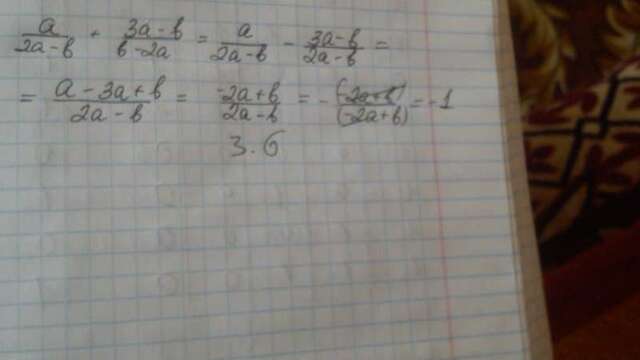 a/(2a-b) + (3a-b)/(b-2a) = a/(2a-b) - (3a-b)/(2a-b) =
= (a-3a+b)/(2a-b) = (-2a+b)/(2a-b) = - (-2a+b)/(-2a+b) = -1
3.6